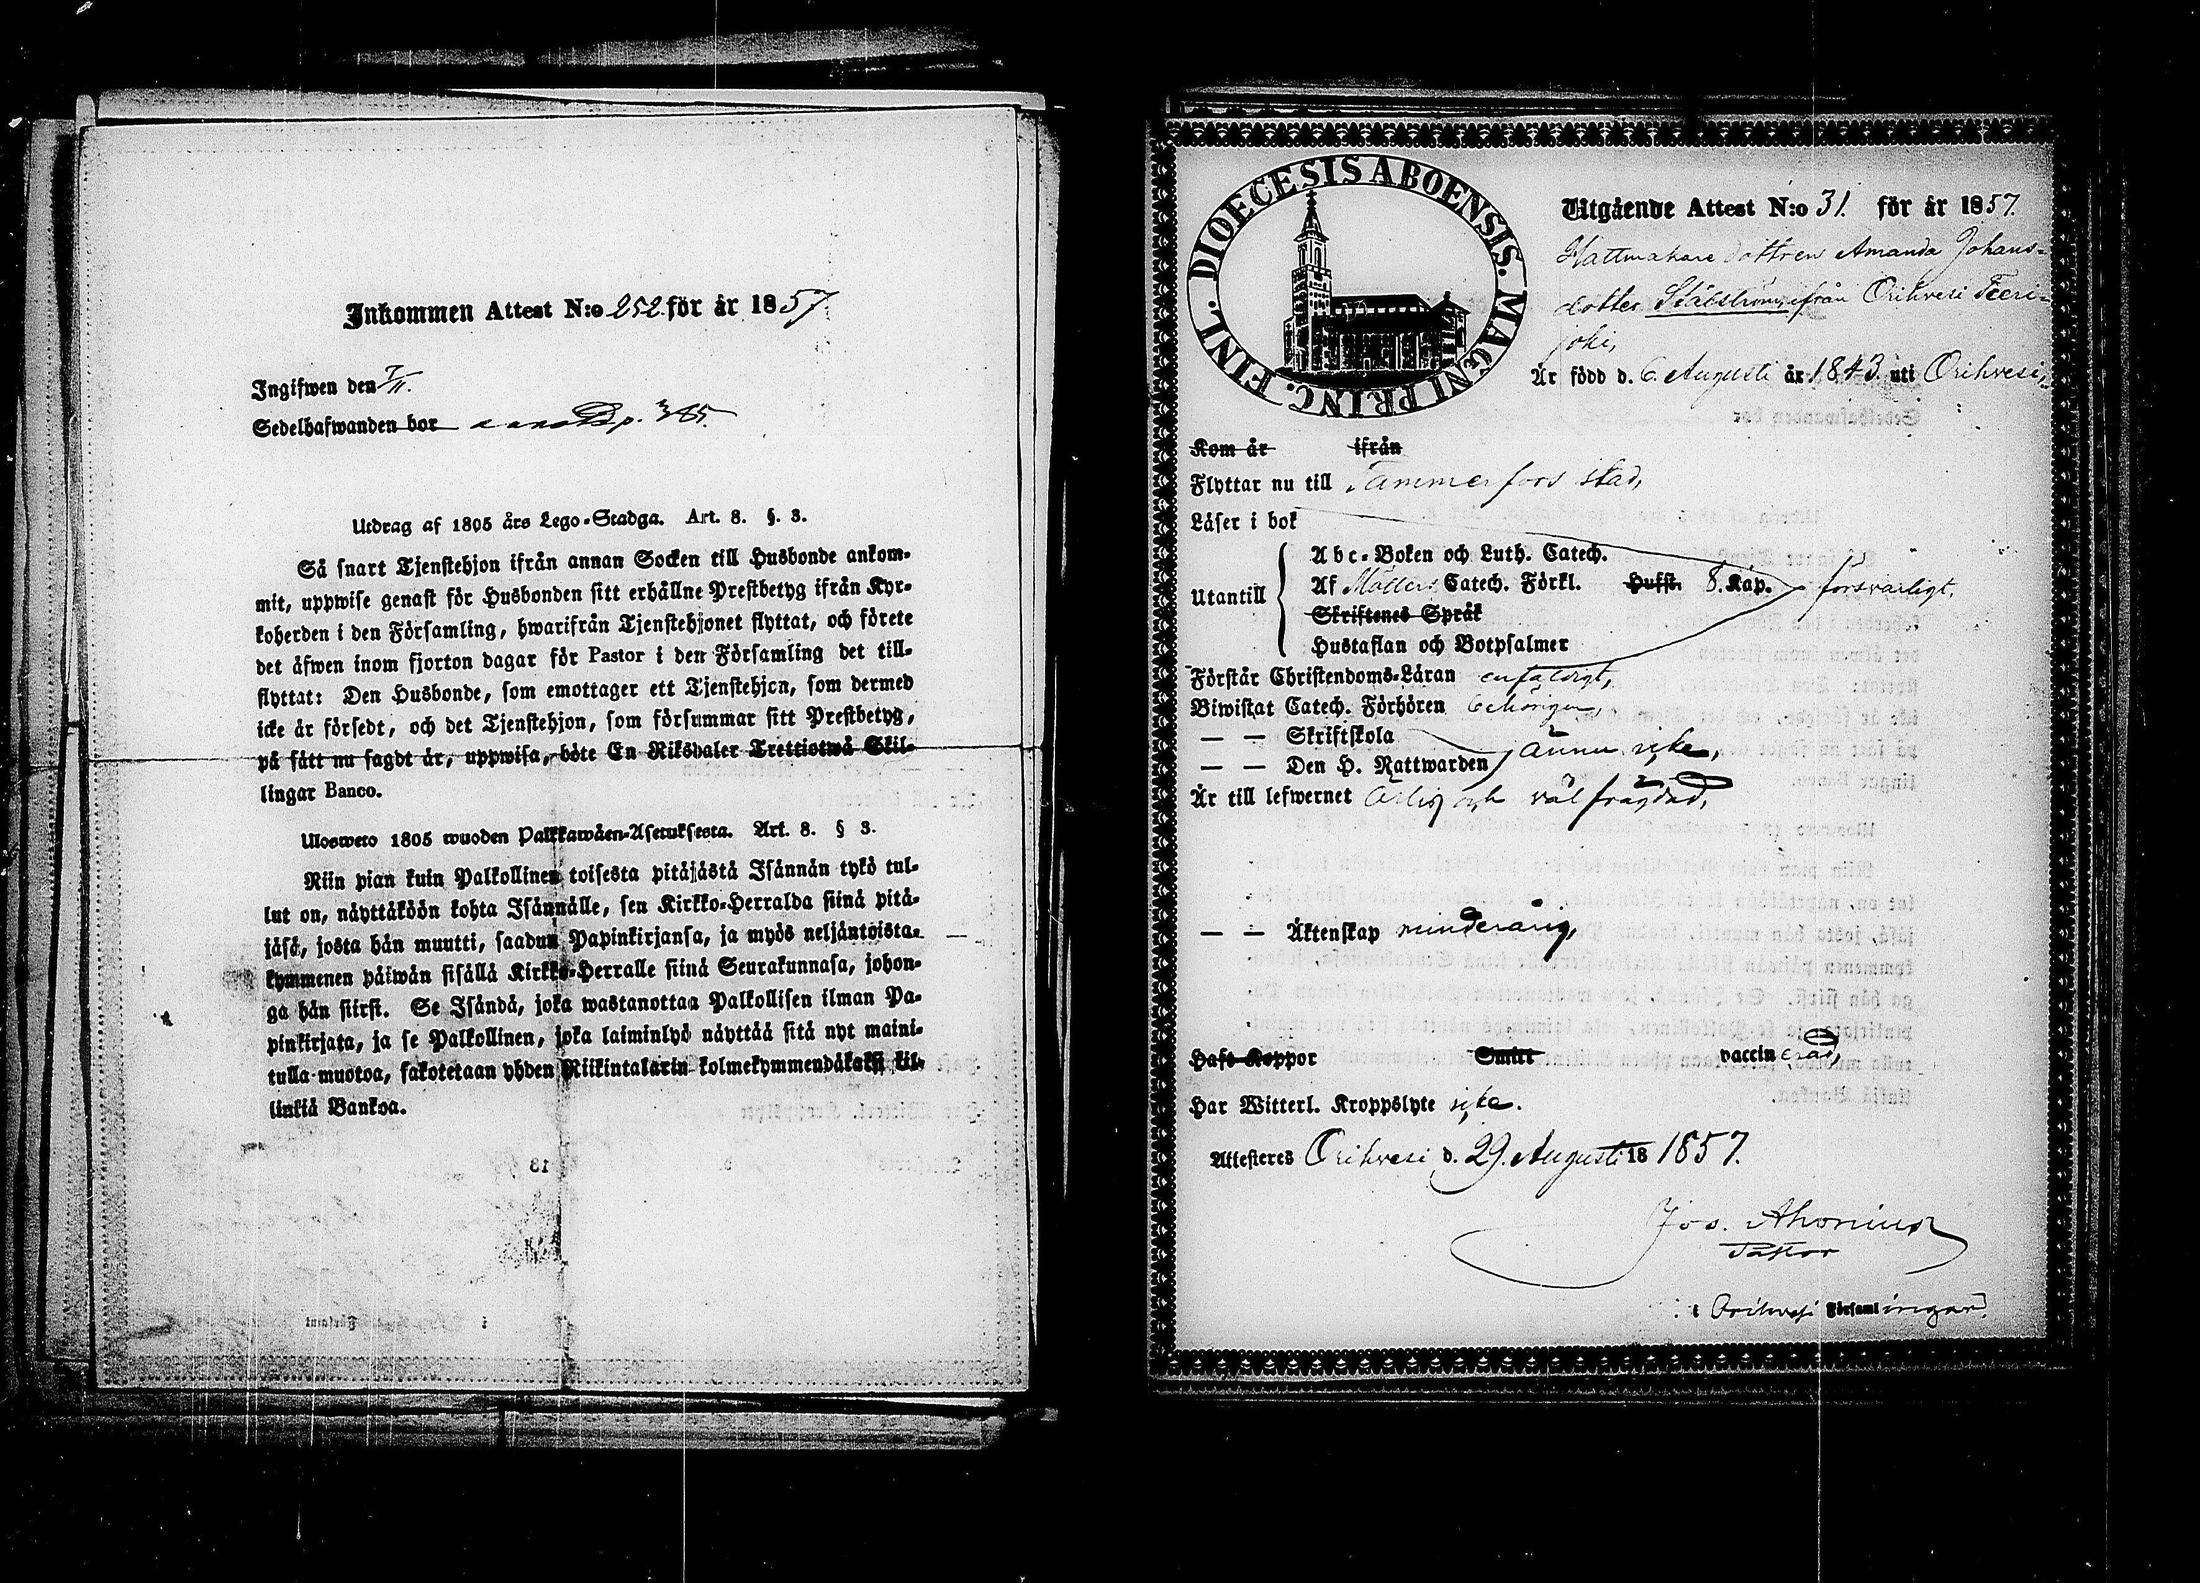 Inkommen Attest N:o 252 för år 1857
Ingifwen den 7/11.
Sedelhafwanden bor p. 385.
Utdrag af 1805 års Lego-Stadga. Art. 8. §. 3.
Så snart Tjenstehjon ifrån annan Socken till Husbonde ankom-
mit, uppwise genast för Husbonden sitt erhållne Prestbetyg ifrån Kyr-
koherden i den Församling, hwarifrån Tjenstehjonet flyttat, och förete
det äfwen inom fjorton dagar för Pastor i den Församling det till-
flyttat: Den Husbonde, som emottager ett Tjenstehjon, som dermed
icke är försedt, och det Tjenstehjon, som försummar sitt Prestbetyg,
på sätt nu sagdt är, uppwisa, böte En Riksdaler Trettiotwå Skil-
lingar Banco.
Ulosweto 1805 wuoden Palkkawäen-Asetuksesta. Art. 8. § 3.
Niin pian kuin Palkollinen toisesta pitäjästä Isännän tykö tul-
lut on, näyttäköön kohta Isännälle, sen Kirkko-Herralda siinä pitä-
jäsä, josta hän muutti, saadun Papinkirjansa, ja myös neljäntoista-
kymmenen päiwän sisällä Kirkko-Herralle siinä Seurakunnasa, johon-
ga hän siirst. Se Isändä, joka wastanottaa Palkollisen ilman Pa-
pinkirjata, ja se Palkollinen, joka laiminlyö näyttää sitä nyt maini-
tulla muotoa, sakotetaan yhden Riikintalarin kolmekymmendäkaksi kil-
linkiä Bankoa.
DIOECESIS ABOENSIS. MAGNI PRINC. FINL.
Utgående Attest N:o 31. för år 1857.
Hattmakare dottren Amanda Johans-
dotter Stålström ifrån Orihvesi Teeri-
joki,
Är född d. 6 Augusti år 1843. uti Orihvesi,
Kom år ifrån
Flyttar nu till Tammerfors stad,
Läser i bok
Utantill
Abc-Boken och Luth. Catech.
Af Möllers Catech. Förkl. Hufst. 8. Kap. försvarligt,
Skriftenes Språk
Hustaflan och Botpsalmer
Förstår Christendoms-Läran enfaldigt,
Biwistat Catech. Förhören behörigen,
— — Skriftskola
— — Den H. Nattwarden ännu icke,
Är till lefwernet ärlig och väl frägdad,
— — Äktenskap minderårig,
Haft Koppor Smitt vaccinerad,
Har Witterl. Kroppslyte icke.
Attesteres Orihvesi d. 29. Augusti 18 1857.
Jos. Ahonius
Pastor
i Orihvesi Församlingar.